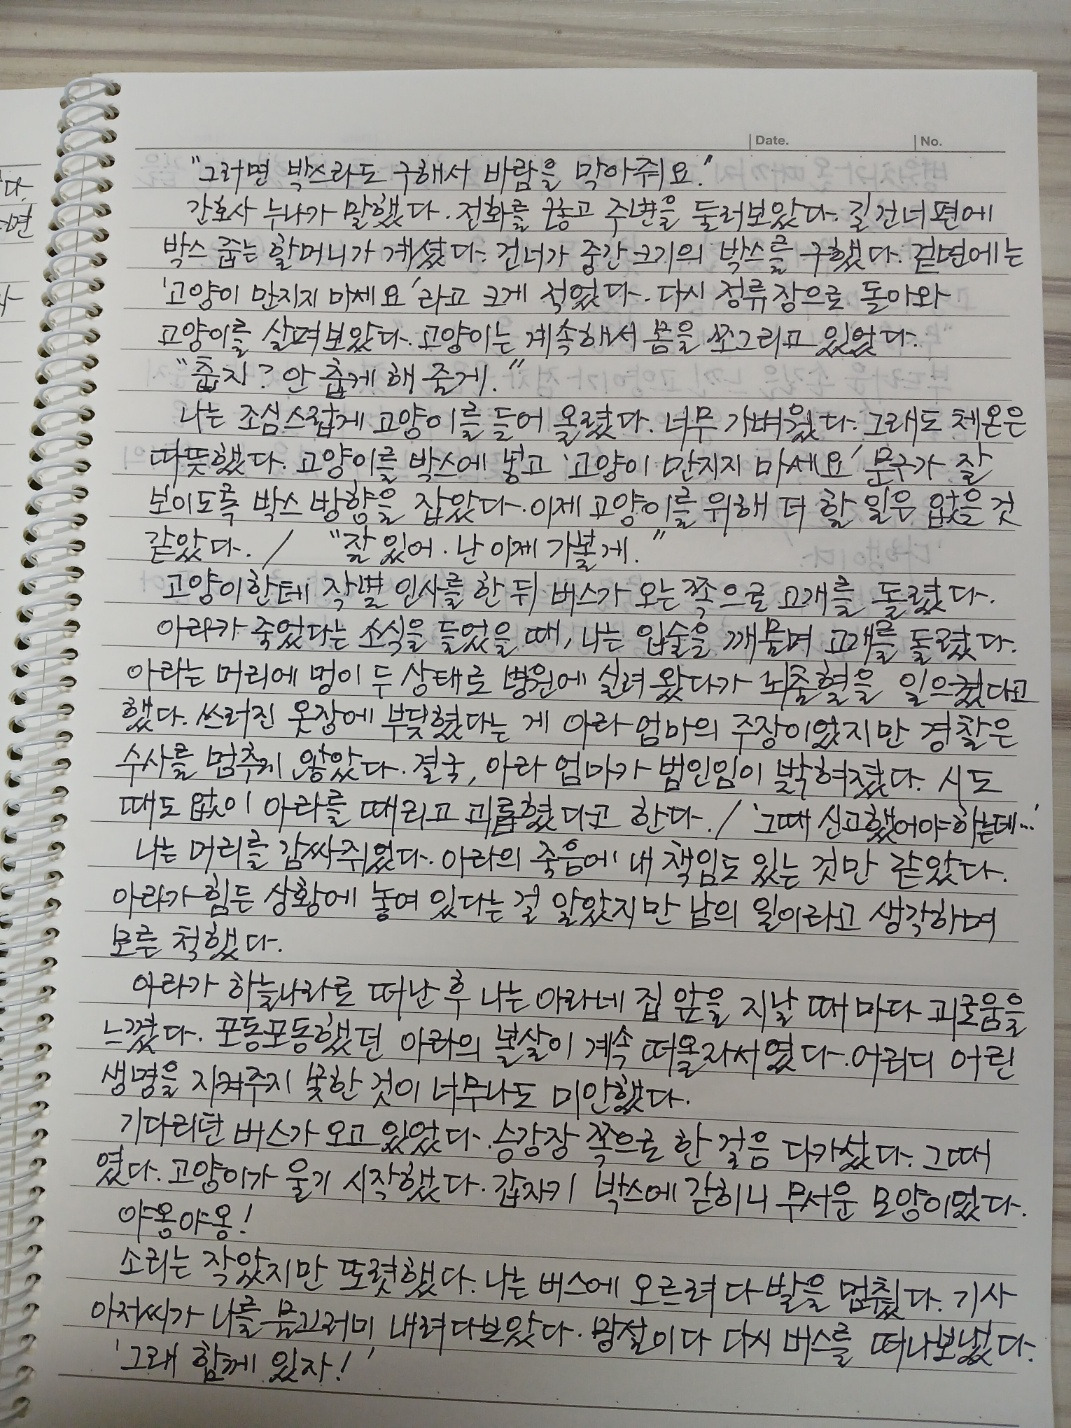 Date. No.
"그러면 박스라도 구해서 바람을 막아줘요."
간호사 누나가 말했다. 전화를 끊고 주변을 둘러보았다. 길 건너편에
박스 줍는 할머니가 계셨다. 건너가 중간 크기의 박스를 구했다. 겉면에는
'고양이 만지지 마세요'라고 크게 적었다. 다시 정류장으로 돌아와
고양이를 살펴보았다. 고양이는 계속해서 몸을 쪼그리고 있었다.
"춥지? 안 춥게 해 줄게."
나는 조심스럽게 고양이를 들어 올렸다. 너무 가벼웠다. 그래도 체온은
따뜻했다. 고양이를 박스에 넣고 '고양이 만지지 마세요' 문구가 잘
보이도록 박스 방향을 잡았다. 이제 고양이를 위해 더 할 일은 없을 것
같았다. / "잘 있어. 난 이제 가볼게."
고양이한테 작별 인사를 한 뒤 버스가 오는 쪽으로 고개를 돌렸다.
아라가 죽었다는 소식을 들었을 때, 나는 입술을 깨물며 고개를 돌렸다.
아라는 머리에 멍이 든 상태로 병원에 실려 왔다가 뇌출혈을 일으켰다고
했다. 쓰러진 옷장에 부딪혔다는 게 아라 엄마의 주장이었지만 경찰은
수사를 멈추지 않았다. 결국, 아라 엄마가 범인임이 밝혀졌다. 시도
때도 없이 아라를 때리고 괴롭혔다고 한다. / '그때 신고했어야 하는데…'
나는 머리를 감싸쥐었다. 아라의 죽음에 내 책임도 있는 것만 같았다.
아라가 힘든 상황에 놓여 있다는 걸 알았지만 남의 일이라고 생각하며
모른 척했다.
아라가 하늘나라로 떠난 후 나는 아라네 집 앞을 지날 때마다 괴로움을
느꼈다. 포동포동했던 아라의 볼살이 계속 떠올라서였다. 어리디 어린
생명을 지켜주지 못한 것이 너무나도 미안했다.
기다리던 버스가 오고 있었다. 승강장 쪽으로 한 걸음 다가섰다. 그때
였다. 고양이가 울기 시작했다. 갑자기 박스에 갇히니 무서운 모양이었다.
야옹야옹!
소리는 작았지만 또렷했다. 나는 버스에 오르려다 발을 멈췄다. 기사
아저씨가 나를 물끄러미 내려다보았다. 망설이다 다시 버스를 떠나보냈다.
'그래 함께 있자!'